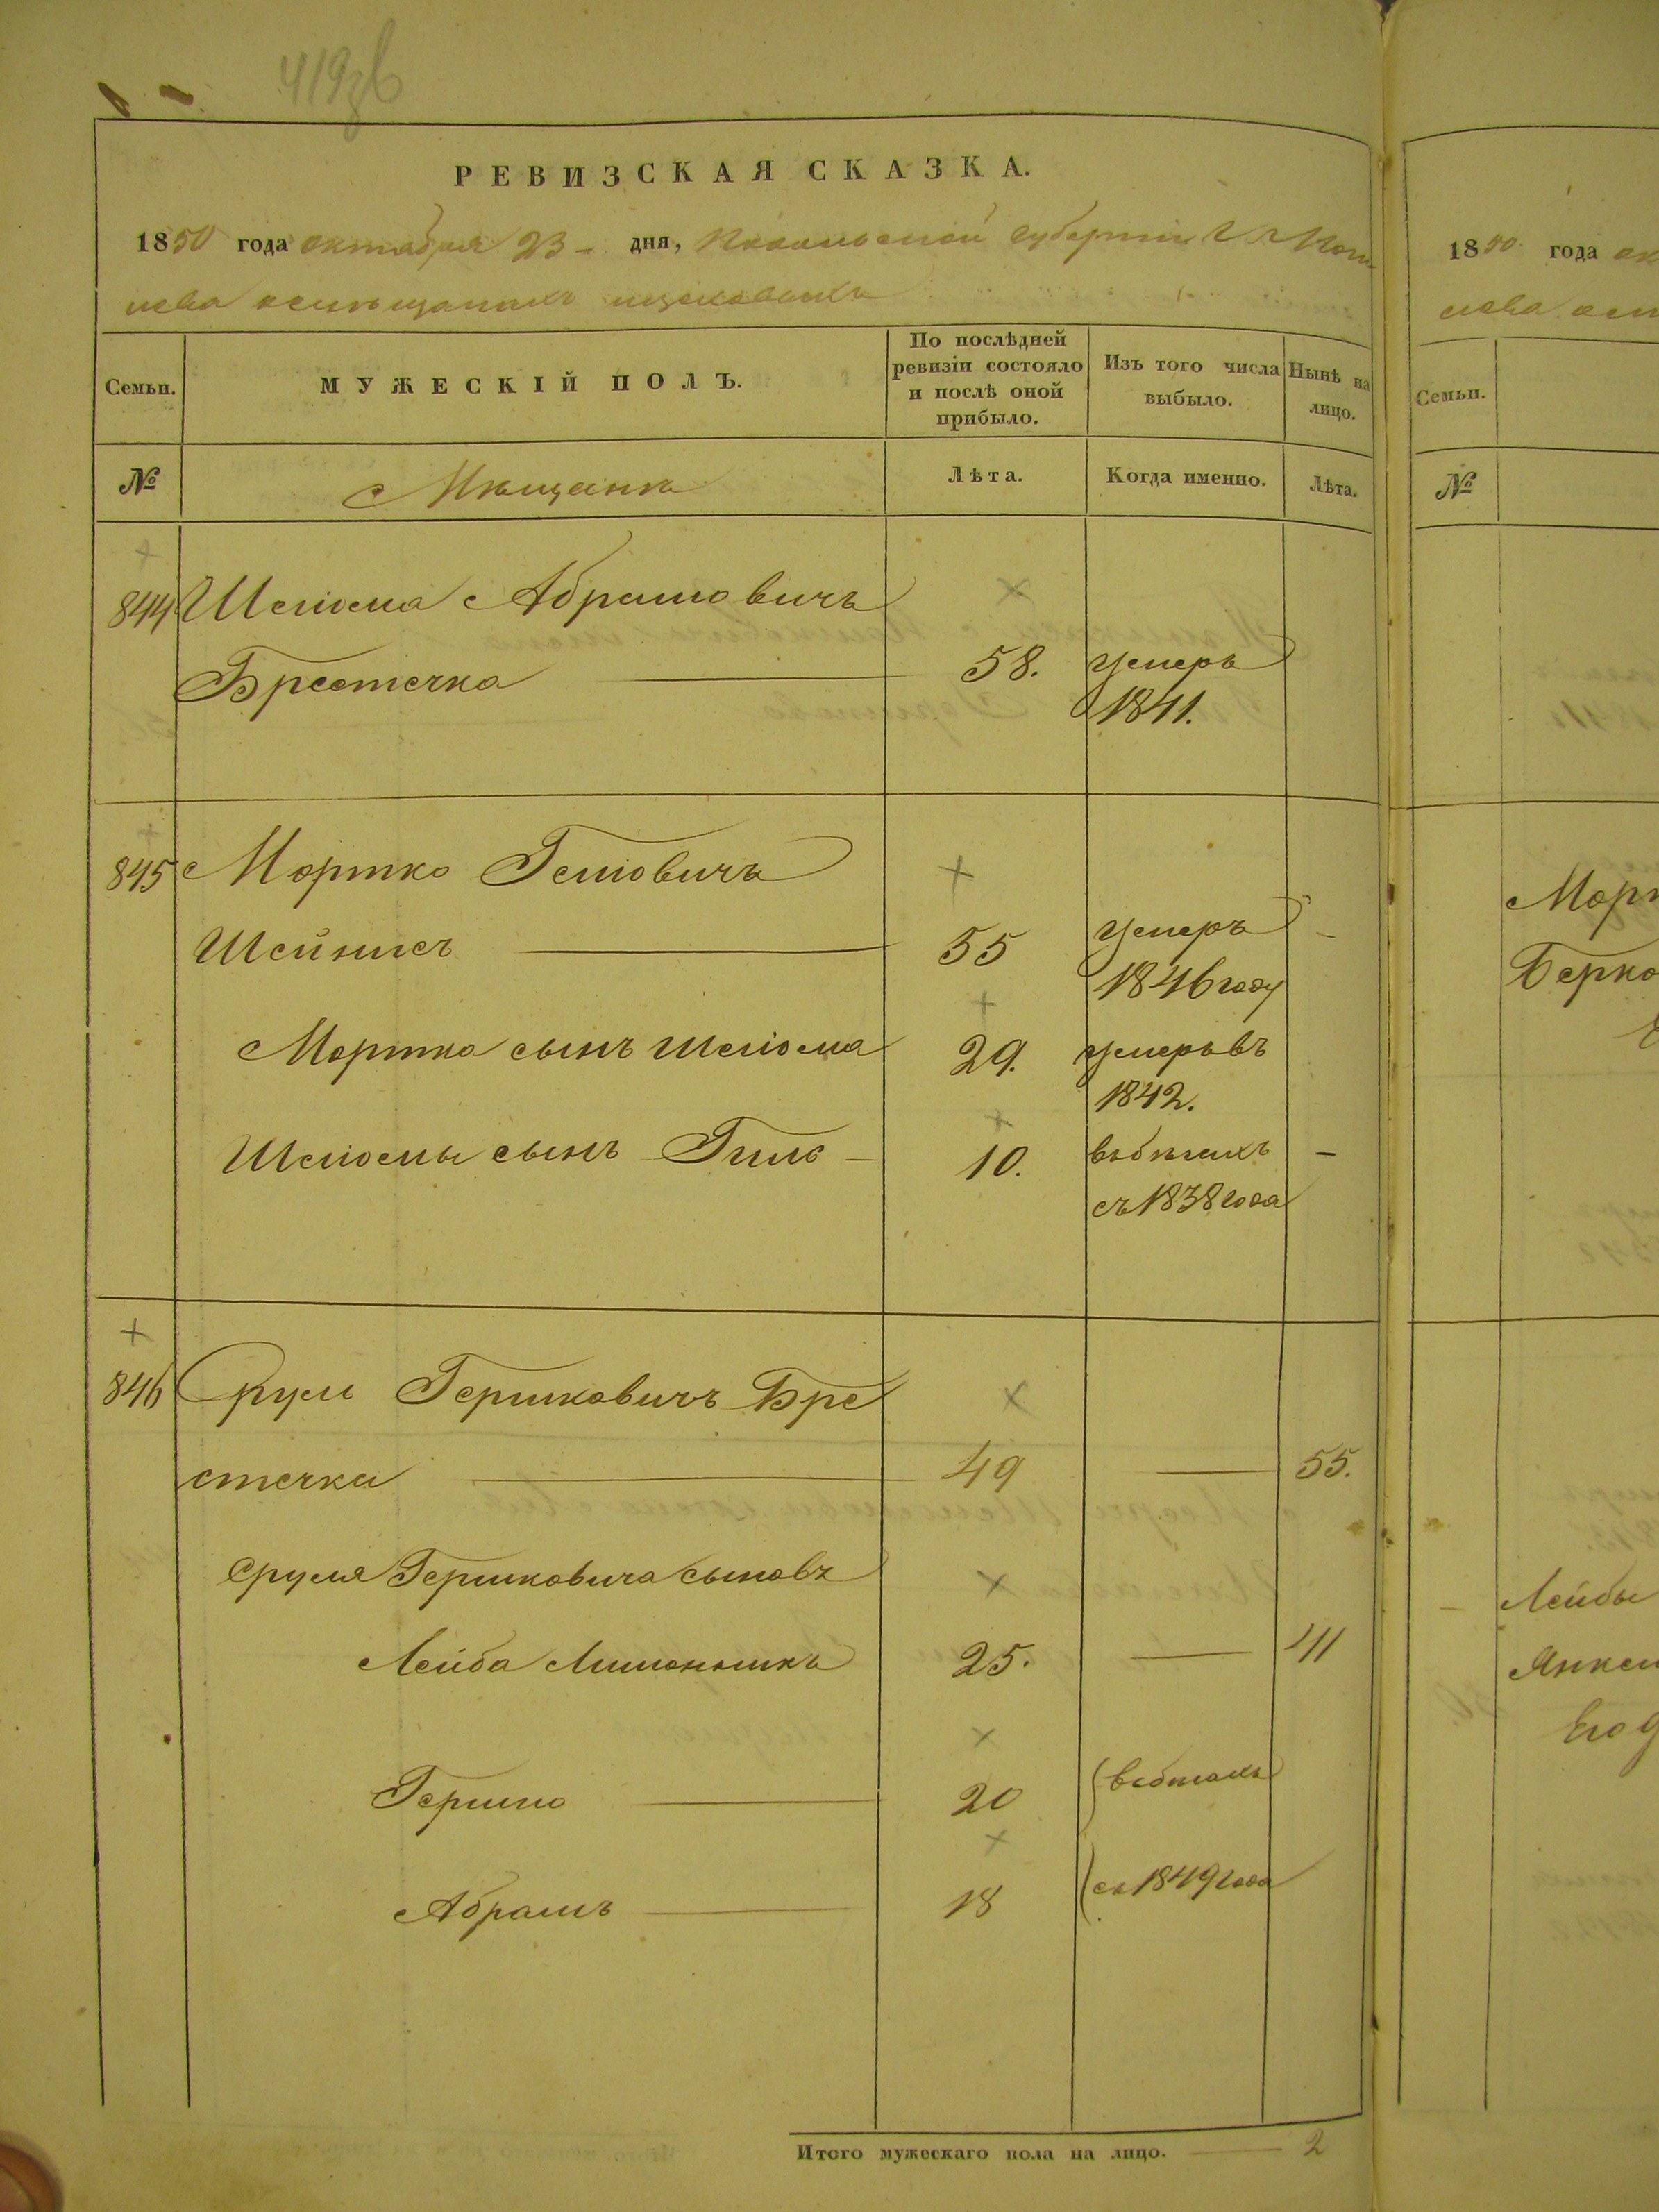 419зв
РЕВИЗСКАЯ СКАЗКА.
1850 года октября 23 - дня, Подольской губернiи Г Моги
лева
Семьи.
МУЖЕСКIЙ ПОЛЪ.
По послѣдней ревизiи состояло и послѣ оной прибыло.
Изъ того числа выбыло.
Нынѣ на лицо.
№
Мѣщане
Лѣта.
Когда именно.
Лѣта.
844 Шлiома Абрамовичъ
Брестечко 58. умеръ
1841.
845 Мортко Гершовичъ
Шейнисъ 55 умеръ -
1846 году
Мортка сынъ Шлiома 29. умеръ въ
1842.
Шлiомы сынъ Гершъ - 10. въ бѣгахъ -
съ 1838 года
846 Сруль Гершковичъ Бре
стечка 49 55.
Сруля Гершковича сыновъ
Лейба 25. 41
Гершко 20 въ бѣгахъ
Абрамъ 18 съ 1849 года
Итого мужескаго пола на лицо. 2
1850 года ок
лева
Семьи.
№
Морт
Берко
Лейбы
Янкел
Его